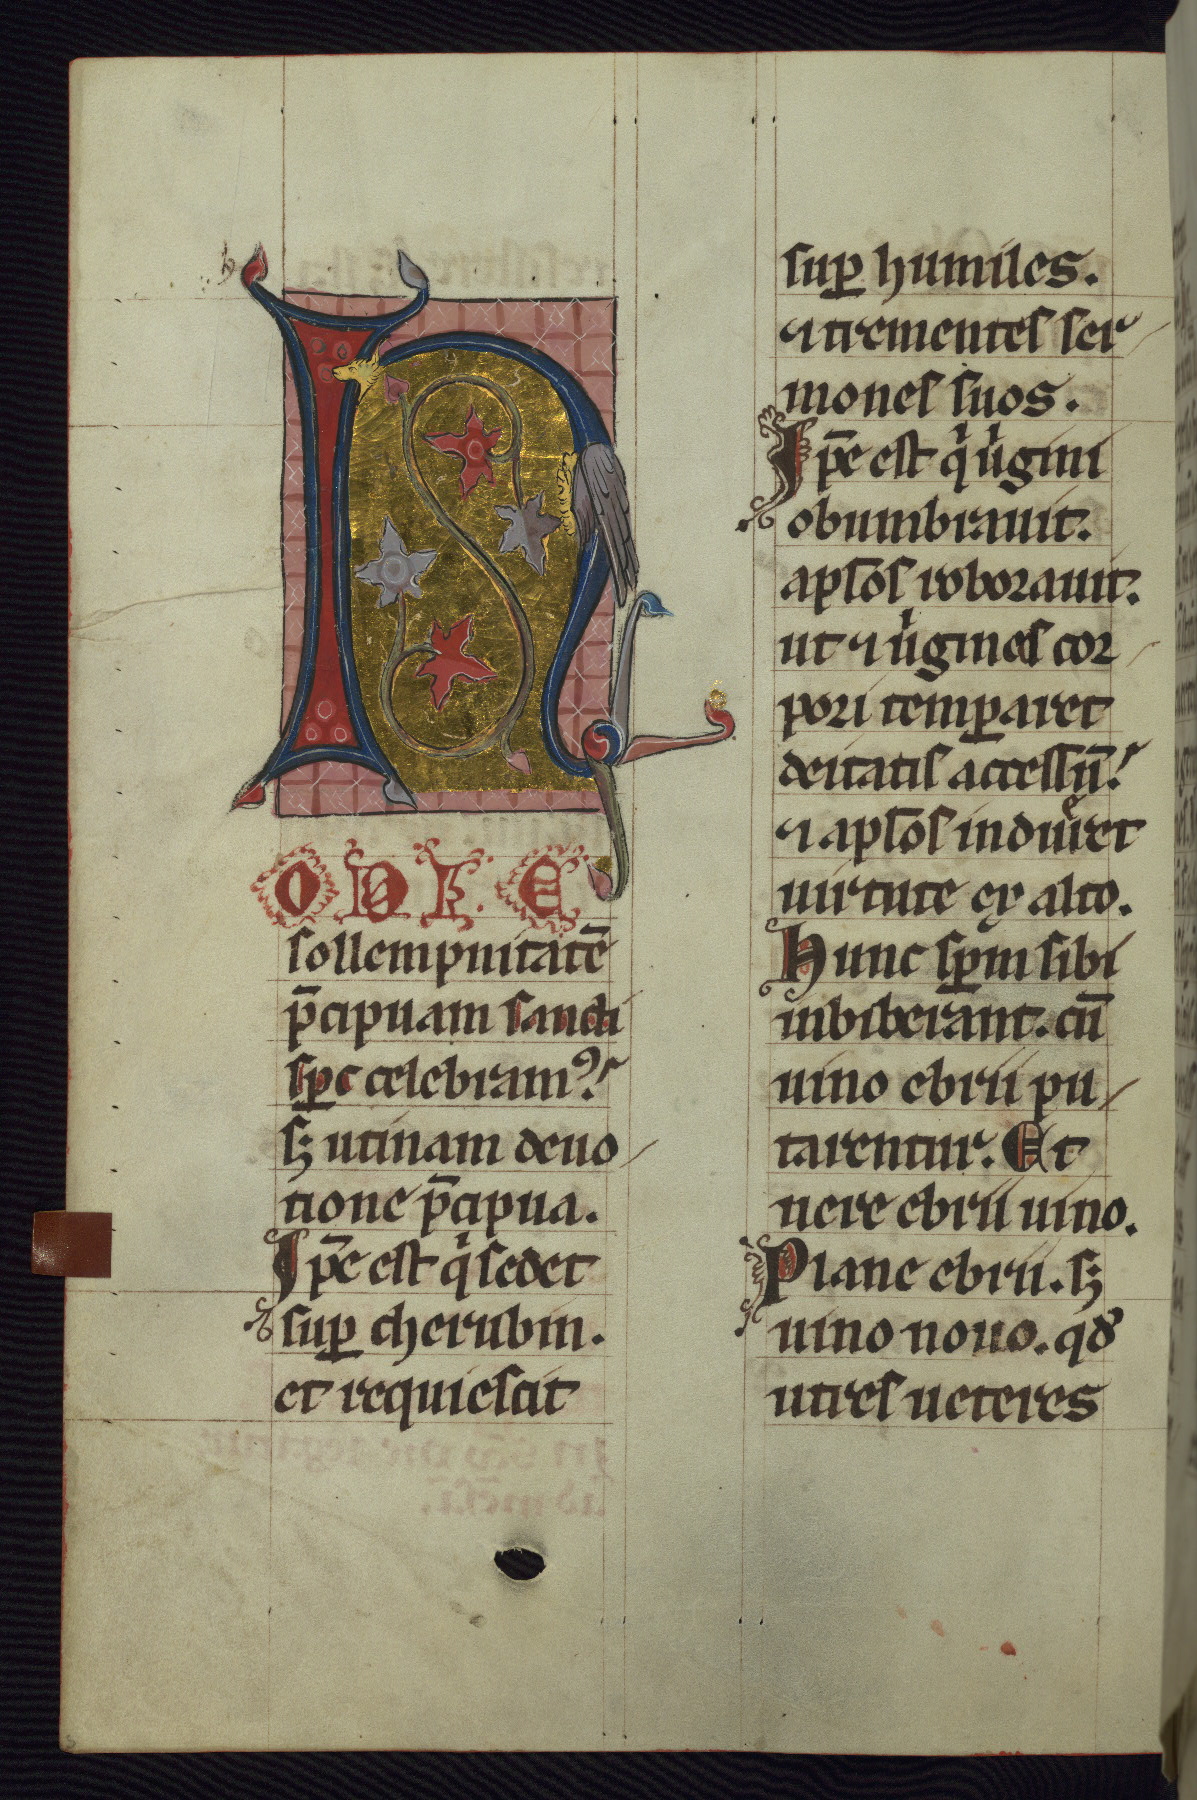 h
hODIE
sollempnitatē
p̄cipuam sancti
sp̄c celebramꝰ.
sꝫ utinam deuo
tione p̄cipua.
Ip̄e est qͥ sedet
suꝑ cherubin.
et requiescit
suꝑ humiles.
⁊ trementes ser
mones suos.
Ip̄e est qͥ uͥgini
obumbrauit.
aposto̅s roborauit.
ut ⁊ uͥgines cor
pori temꝑaret
deitatis accessū.
⁊ apl̅os induēret
uirtute ex alto.
Hunc sp̄m sibi
inbiberant. cū
uino ebrii pu
tarentur. Et
uere ebrii uino.
Plane ebrii. sꝫ
uino nouo. qđ
utres ueteres